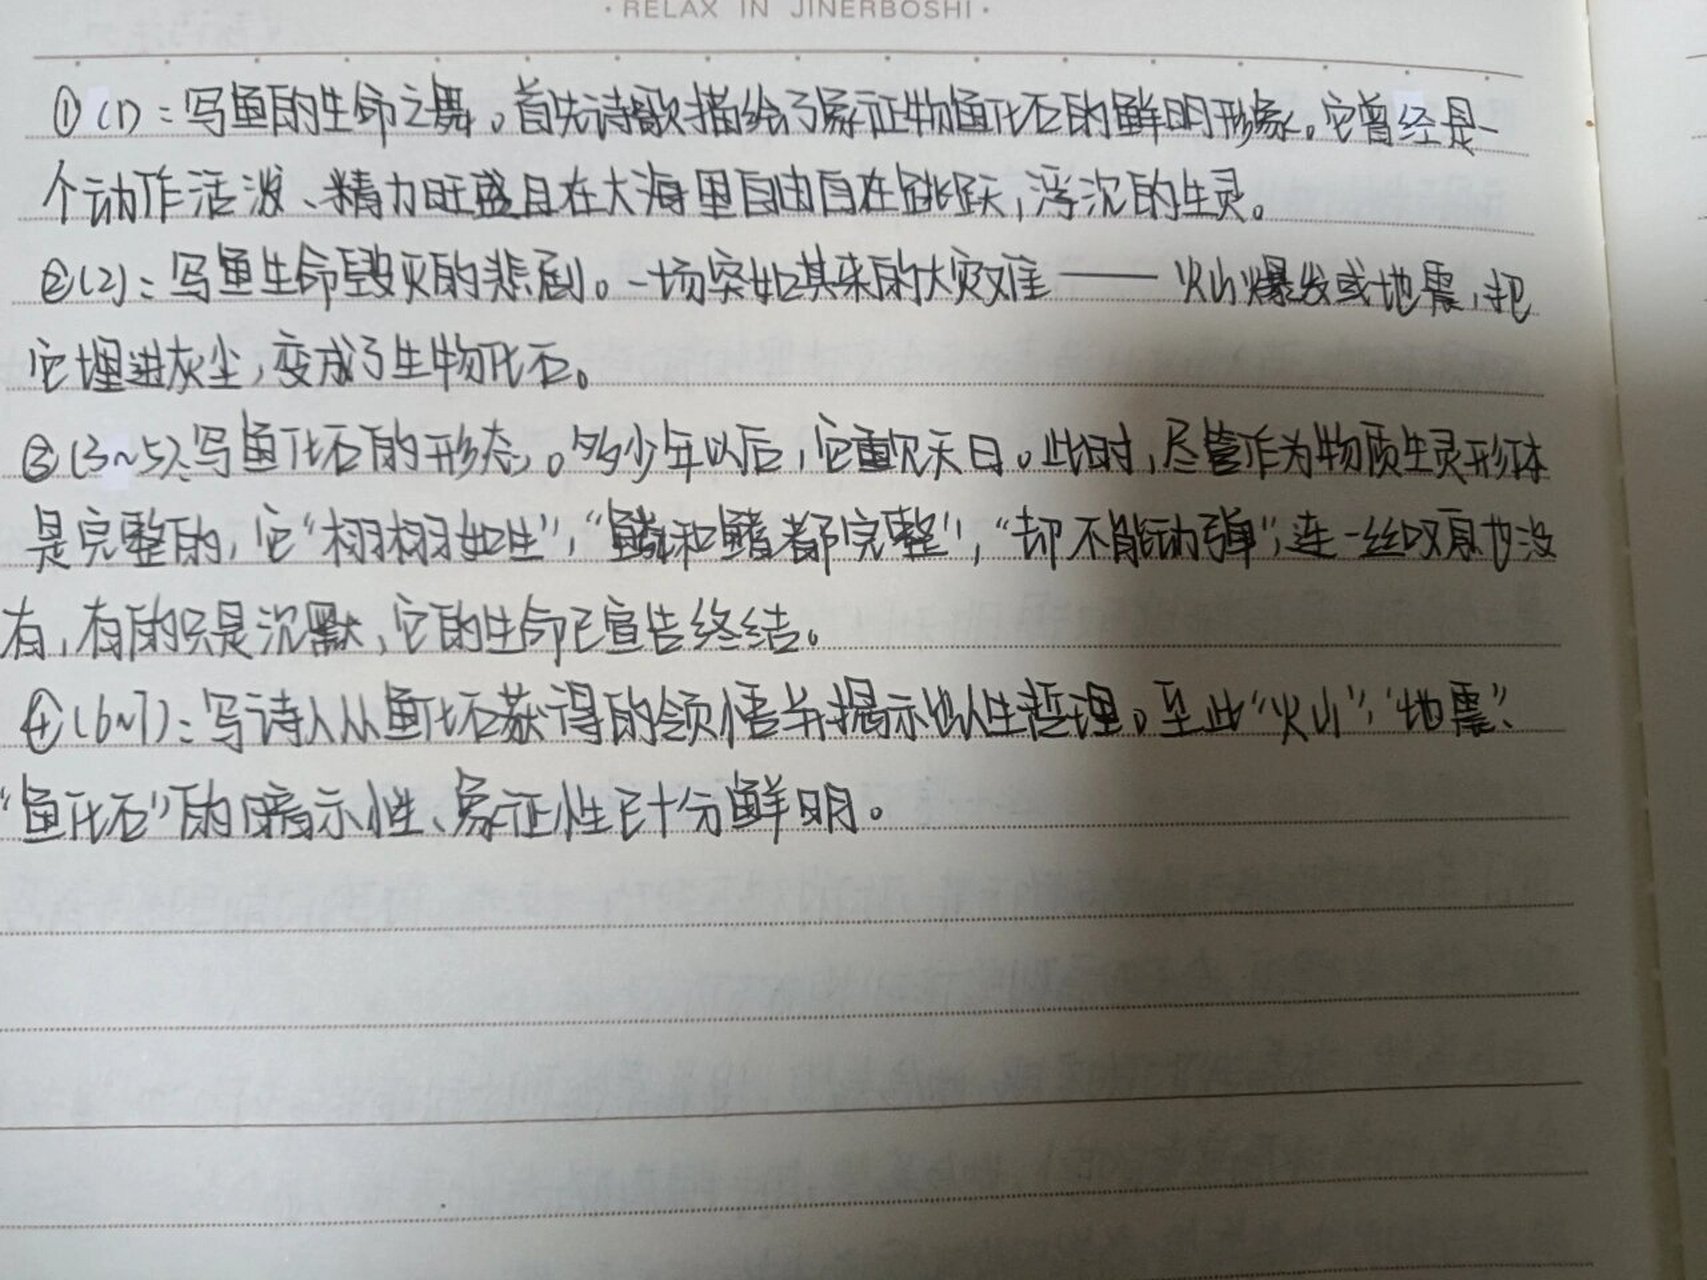 · RELAX IN JINERBOSHI ·
①(1)：写鱼的生命之舞。首先诗歌描绘了象征物鱼化石的鲜明形象。它曾经是一
个动作活泼、精力旺盛且在大海里自由自在跳跃，浮沉的生灵。
②(2)：写鱼生命毁灭的悲剧。一场突如其来的大灾难——火山爆发或地震，把
它埋进灰尘，变成了生物化石。
③(3~5)：写鱼化石的形态。多少年以后，它重见天日。此时，尽管作为物质生灵形体
是完整的，它“栩栩如生”，“鳞和鳍都完整”，“却不能动弹”，连一丝叹息也没
有，有的只是沉默，它的生命已宣告终结。
④(6~7)：写诗人从鱼化石获得的领悟并揭示出人生哲理。至此“火山”，“地震”、
“鱼化石”的暗示性、象征性已十分鲜明。